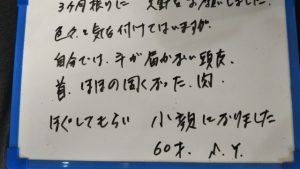 3ヶ月振りに 矢野をお願いしました。
色々と気を付けてはいますが、
自分では、手が届かない頭皮、
首、ほほの固くなった、肉
ほぐしてもらい 小顔になりました
60才、N.Y.